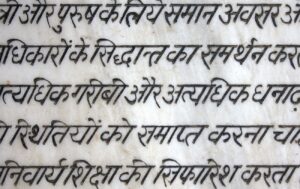 त्री और पुरुष के लिये समान अवसर अ
धिकारों के सिद्धान्त का समर्थन कर
त्यधिक गरीबी और अत्यधिक धनाढ
स्थितियों को समाप्त करना चा
निवार्य शिक्षा की सिफारिश करता